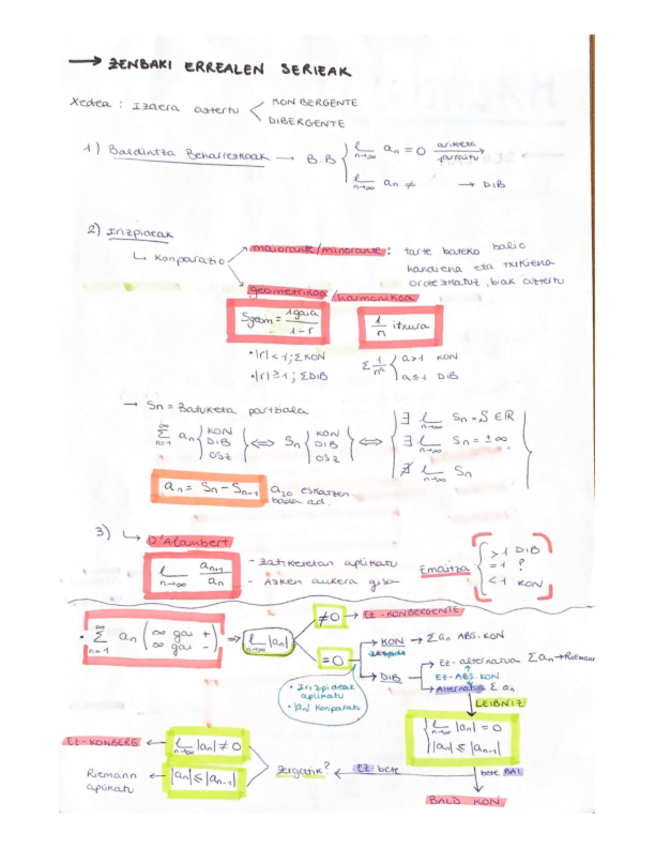 → ZENBAKI ERREALEN SERIEAK
Xedea : Izaera aztertu < KONBERGENTE
DIBERGENTE
1) Baldintza Beharrezkoak → B.B { l n→∞ an = 0 ariketa jarraitu →
l n→∞ an ≠ → DIB
2) Irizpideak
↳ Konparazio
maiorante/minorante : tarte bateko balio
handiena eta txikiena
ordezkatuz, biak aztertu
geometrikoa /harmonikoa
Sgeom = 1gaia / 1-r
1/n itxura
• |r| < 1 ; Σ KON
• |r| ≥ 1 ; Σ DIB
Σ 1/n^a { a>1 KON
a≤1 DIB
→ Sn = Batuketa partziala
∞ Σ n=1 an { KON DIB OSZ <=> Sn { KON DIB OSZ <=> { ∃ l n→∞ Sn = S ∈ R
∃ l n→∞ Sn = ±∞
∄ l n→∞ Sn
an = Sn - Sn-1
a20 eskatzen
bada ad.
3) ↳ D'Alambert
l n→∞ an+1 / an
- Zatiketetan aplikatu
- Azken aukera gisa
Emaitza { >1 DIB
=1 ?
<1 KON
• ∞ Σ n=1 an ( ∞ gai + ∞ gai - ) ⇒ l n→∞ |an|
≠0 → EZ-KONBERGENTE
=0
→ KON → Σ an ABS. KON
→ DIB
→ Ez-alternatua Σ an → Riemann
EZ-ABS. KON
→ Alternatua Σ an
• Irizpideak
aplikatu
• |an| konparatu
LEIBNIZ
{ l n→∞ |an| = 0
|an| ≤ |an-1|
EZ-KONBERG ← l n→∞ |an| ≠ 0
Riemann
aplikatu ← |an| ≤ |an-1|
zergatik? ← EZ bete
bete BAI
BALD KON